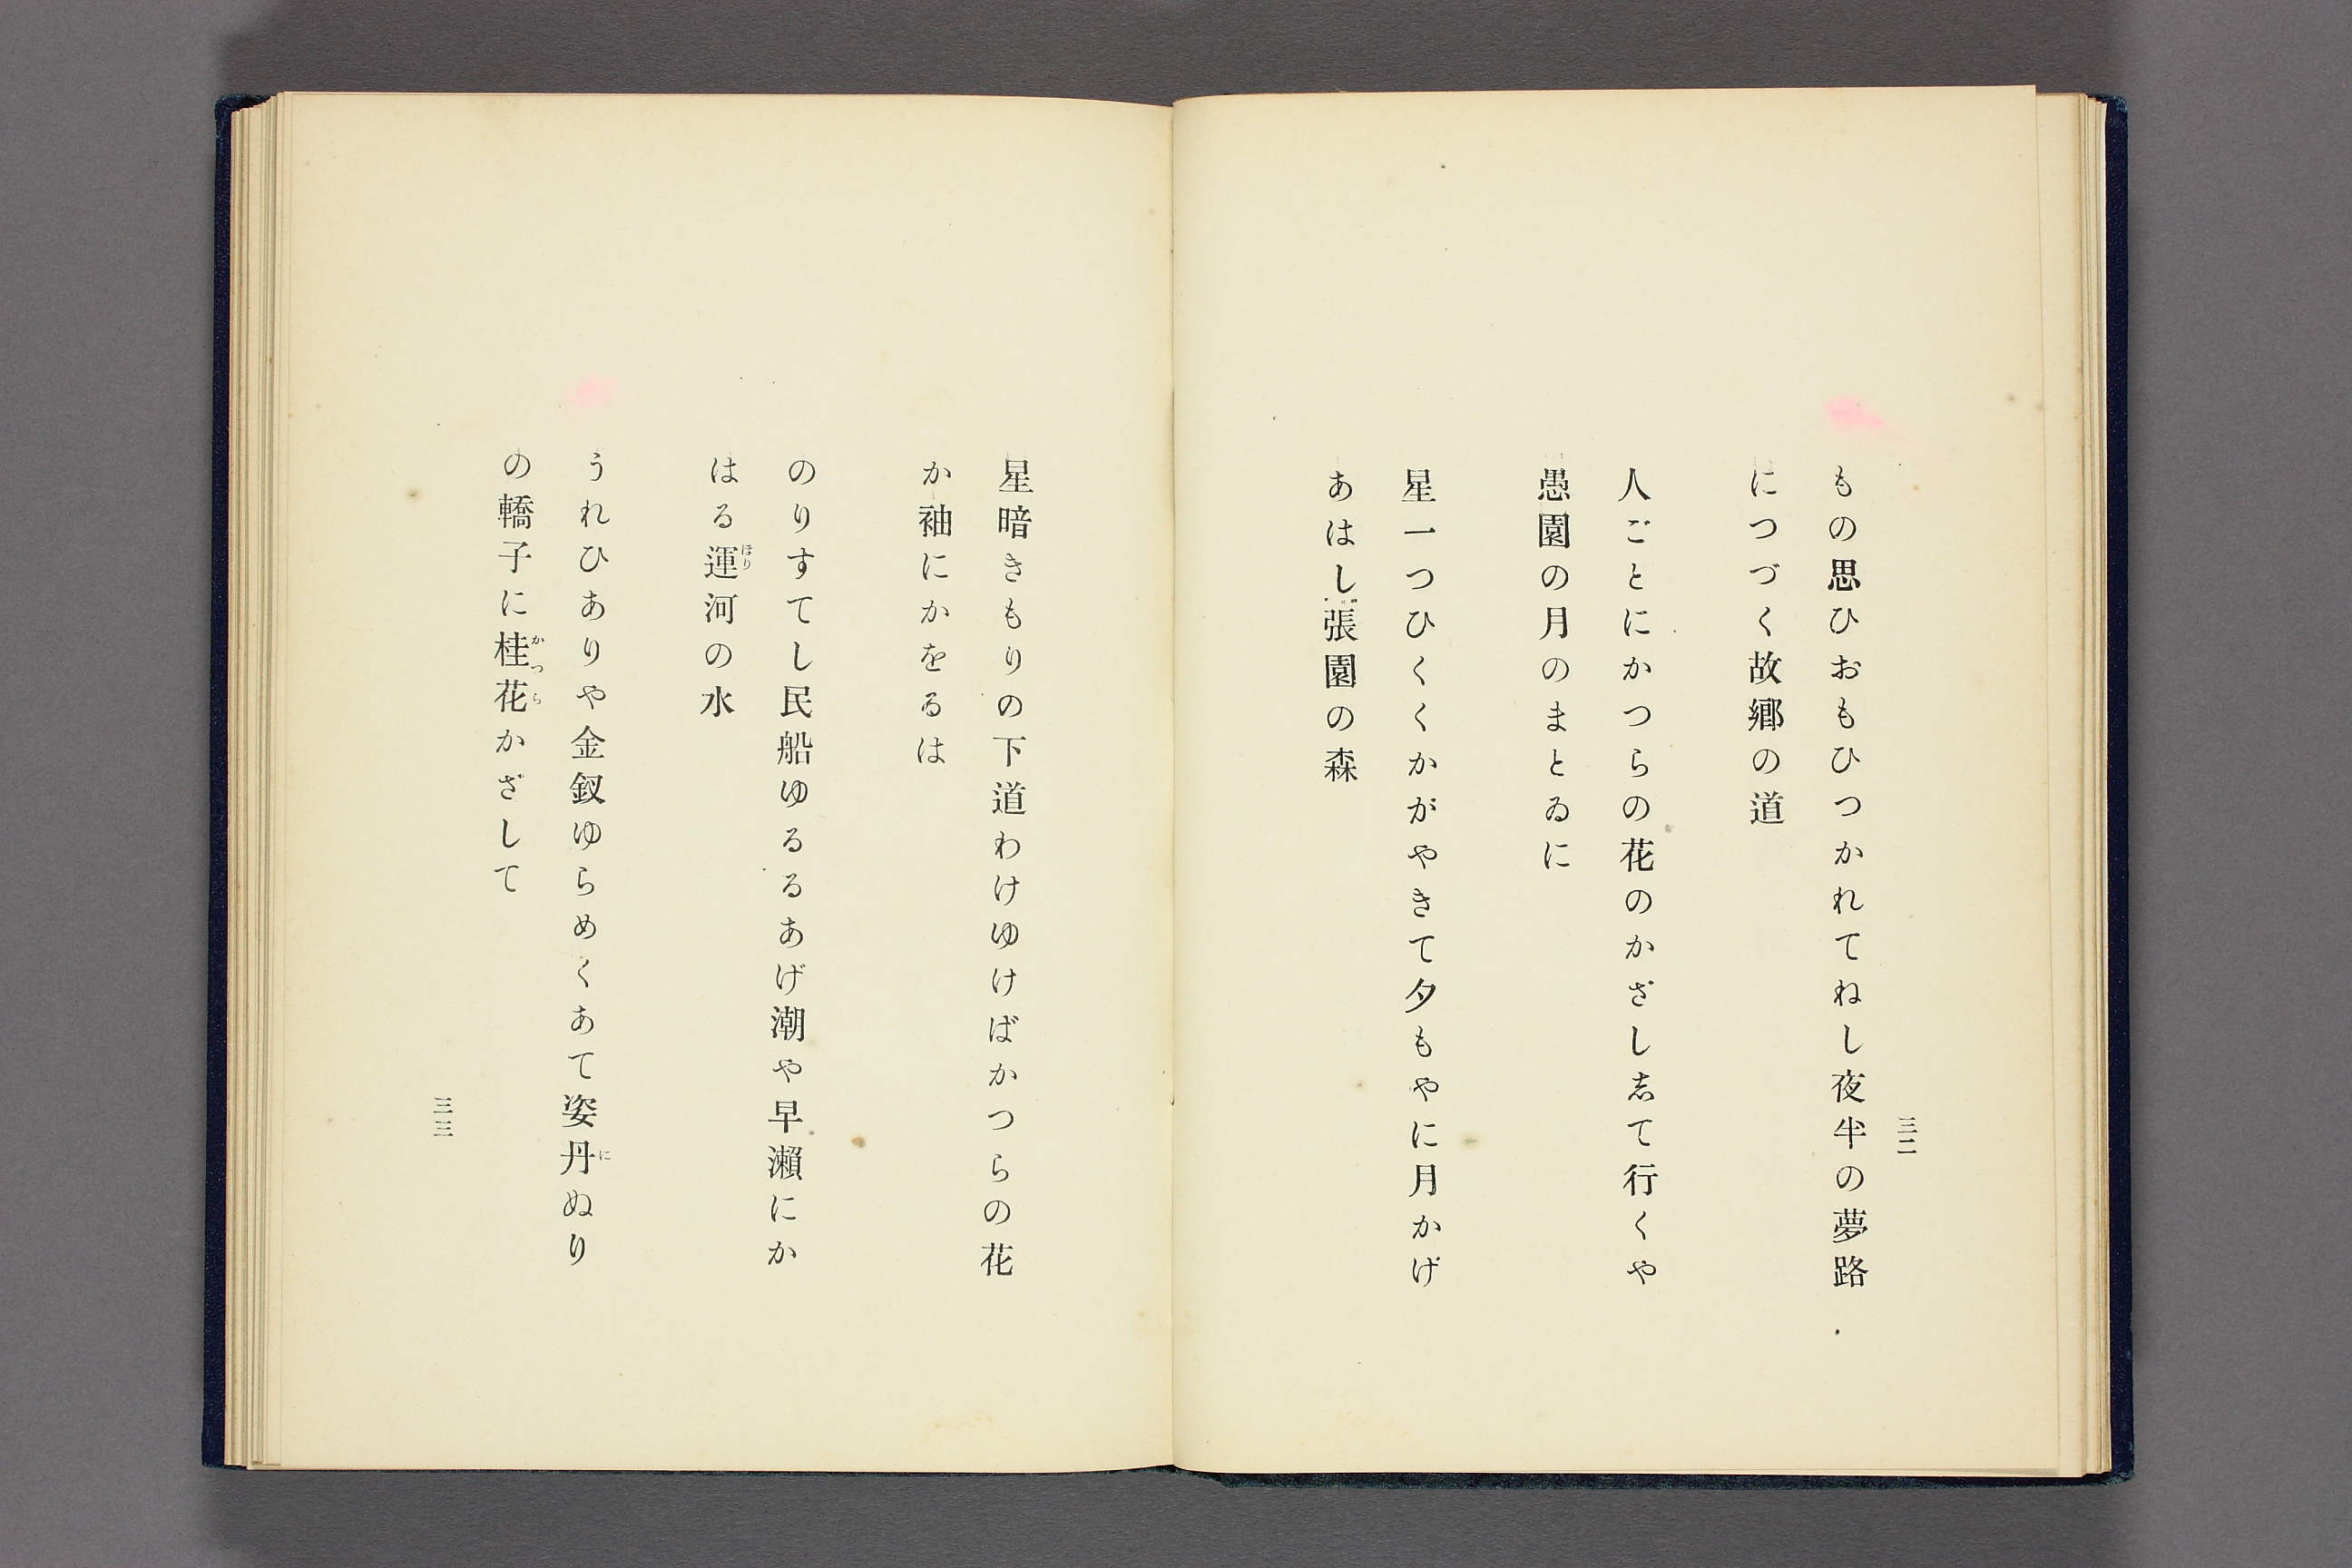 三二
もの思ひおもひつかれてねし夜半の夢路
につづく故郷の道
人ごとにかつらの花のかざし志て行くや
愚園の月のまとゐに
星一つひくくかがやきて夕もやに月かげ
あはし張園の森
星暗きもりの下道わけゆけばかつらの花
か袖にかをるは
のりすてし民船ゆるるあげ潮や早瀬にか
はる運河の水
ほり
うれひありや金釵ゆらめくあて姿丹ぬり
に
の轎子に桂花かざして
かつら
三三